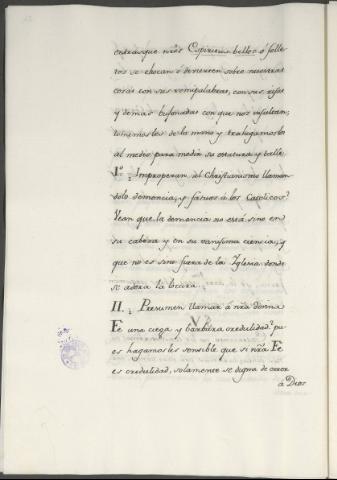 entras que nr̃os Espiritus bellos o folle
tos se chocan o divierten sobre nuestras
cosas con sus romipalabras, con sus risas
y demas bufonadas con que nos insultan;
tomemoslos de la mano y trahigamoslos
al medio para medir su estatura y talle
I.º: Improperan al Christianismo llaman
dolo demencia, y fatuos á los Catolicos?
Vean que la demencia no está sino en
su cabeza y en su vanisima ciencia; y
que no es sino fuera de la Iglesia donde
se adora la locura.
II.: Presumen llamar á nr̃a
Fe una ciega y barbara credulidad? pu
es hagamosles sensible que si nr̃a Fe
es credulidad, solamente se digna de creer
á Dios